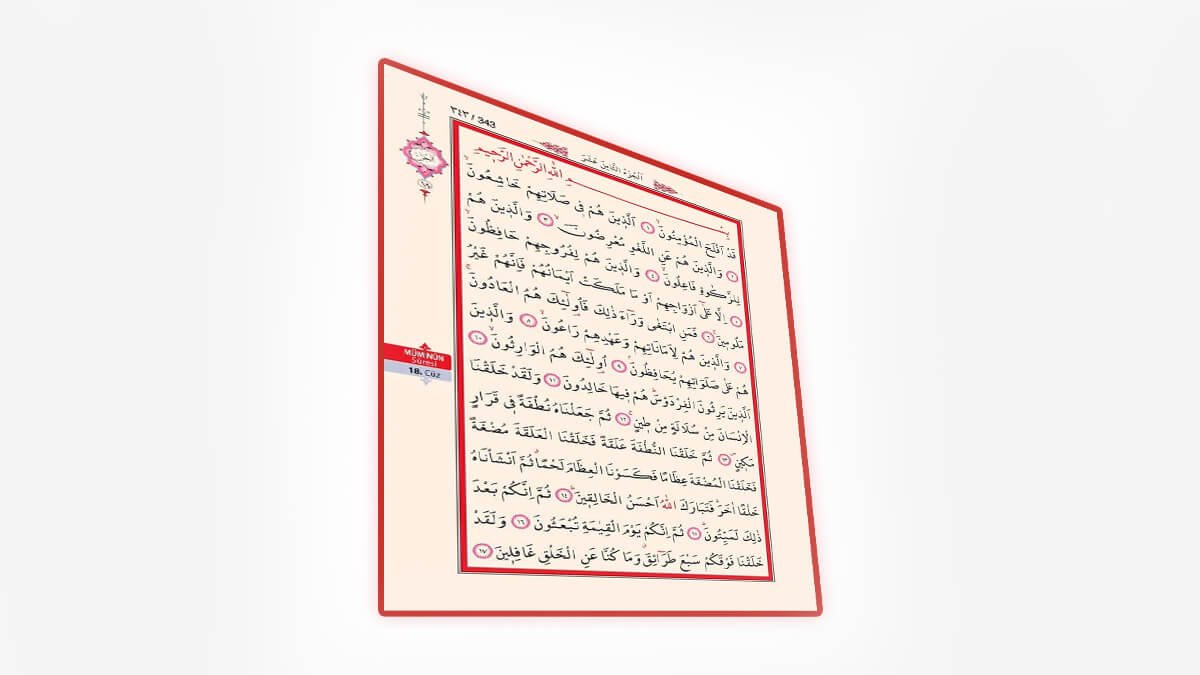 ٣٤٣ / 343
اَلْجُزْءُ الثَّامِنَ عَشَرَ
بِسْمِ اللّٰهِ الرَّحْمٰنِ الرَّحٖيمِ
قَدْ اَفْلَحَ الْمُؤْمِنُونَۙ ﴿١﴾ اَلَّذٖينَ هُمْ فٖى صَلَاتِهِمْ خَاشِعُونَۙ
﴿٢﴾ وَالَّذٖينَ هُمْ عَنِ اللَّغْوِ مُعْرِضُونَۙ ﴿٣﴾ وَالَّذٖينَ هُمْ
لِلزَّكٰوةِ فَاعِلُونَۙ ﴿٤﴾ وَالَّذٖينَ هُمْ لِفُرُوجِهِمْ حَافِظُونَۙ
﴿٥﴾ اِلَّا عَلٰٓى اَزْوَاجِهِمْ اَوْ مَا مَلَكَتْ اَيْمَانُهُمْ فَاِنَّهُمْ غَيْرُ
مَلُومٖينَۚ ﴿٦﴾ فَمَنِ ابْتَغٰى وَرَٓاءَ ذٰلِكَ فَاُولٰٓئِكَ هُمُ الْعَادُونَۚ
﴿٧﴾ وَالَّذٖينَ هُمْ لِاَمَانَاتِهِمْ وَعَهْدِهِمْ رَاعُونَۙ ﴿٨﴾ وَالَّذٖينَ
هُمْ عَلٰى صَلَوَاتِهِمْ يُحَافِظُونَۘ ﴿٩﴾ اُولٰٓئِكَ هُمُ الْوَارِثُونَۙ ﴿١٠﴾
اَلَّذٖينَ يَرِثُونَ الْفِرْدَوْسَؕ هُمْ فٖيهَا خَالِدُونَ ﴿١١﴾ وَلَقَدْ خَلَقْنَا
الْاِنْسَانَ مِنْ سُلَالَةٍ مِنْ طٖينٍۚ ﴿١٢﴾ ثُمَّ جَعَلْنَاهُ نُطْفَةً فٖى قَرَارٍ
مَكٖينٍۖ ﴿١٣﴾ ثُمَّ خَلَقْنَا النُّطْفَةَ عَلَقَةً فَخَلَقْنَا الْعَلَقَةَ مُضْغَةً
فَخَلَقْنَا الْمُضْغَةَ عِظَامًا فَكَسَوْنَا الْعِظَامَ لَحْمًاۗ ثُمَّ اَنْشَاْنَاهُ
خَلْقًا اٰخَرَؕ فَتَبَارَكَ اللّٰهُ اَحْسَنُ الْخَالِقٖينَؕ ﴿١٤﴾ ثُمَّ اِنَّكُمْ بَعْدَ
ذٰلِكَ لَمَيِّتُونَؕ ﴿١٥﴾ ثُمَّ اِنَّكُمْ يَوْمَ الْقِيٰمَةِ تُبْعَثُونَ ﴿١٦﴾ وَلَقَدْ
خَلَقْنَا فَوْقَكُمْ سَبْعَ طَرَٓائِقَۗ وَمَا كُنَّا عَنِ الْخَلْقِ غَافِلٖينَ ﴿١٧﴾
MÜ'MİNÛN
Sûresi
18. Cüz